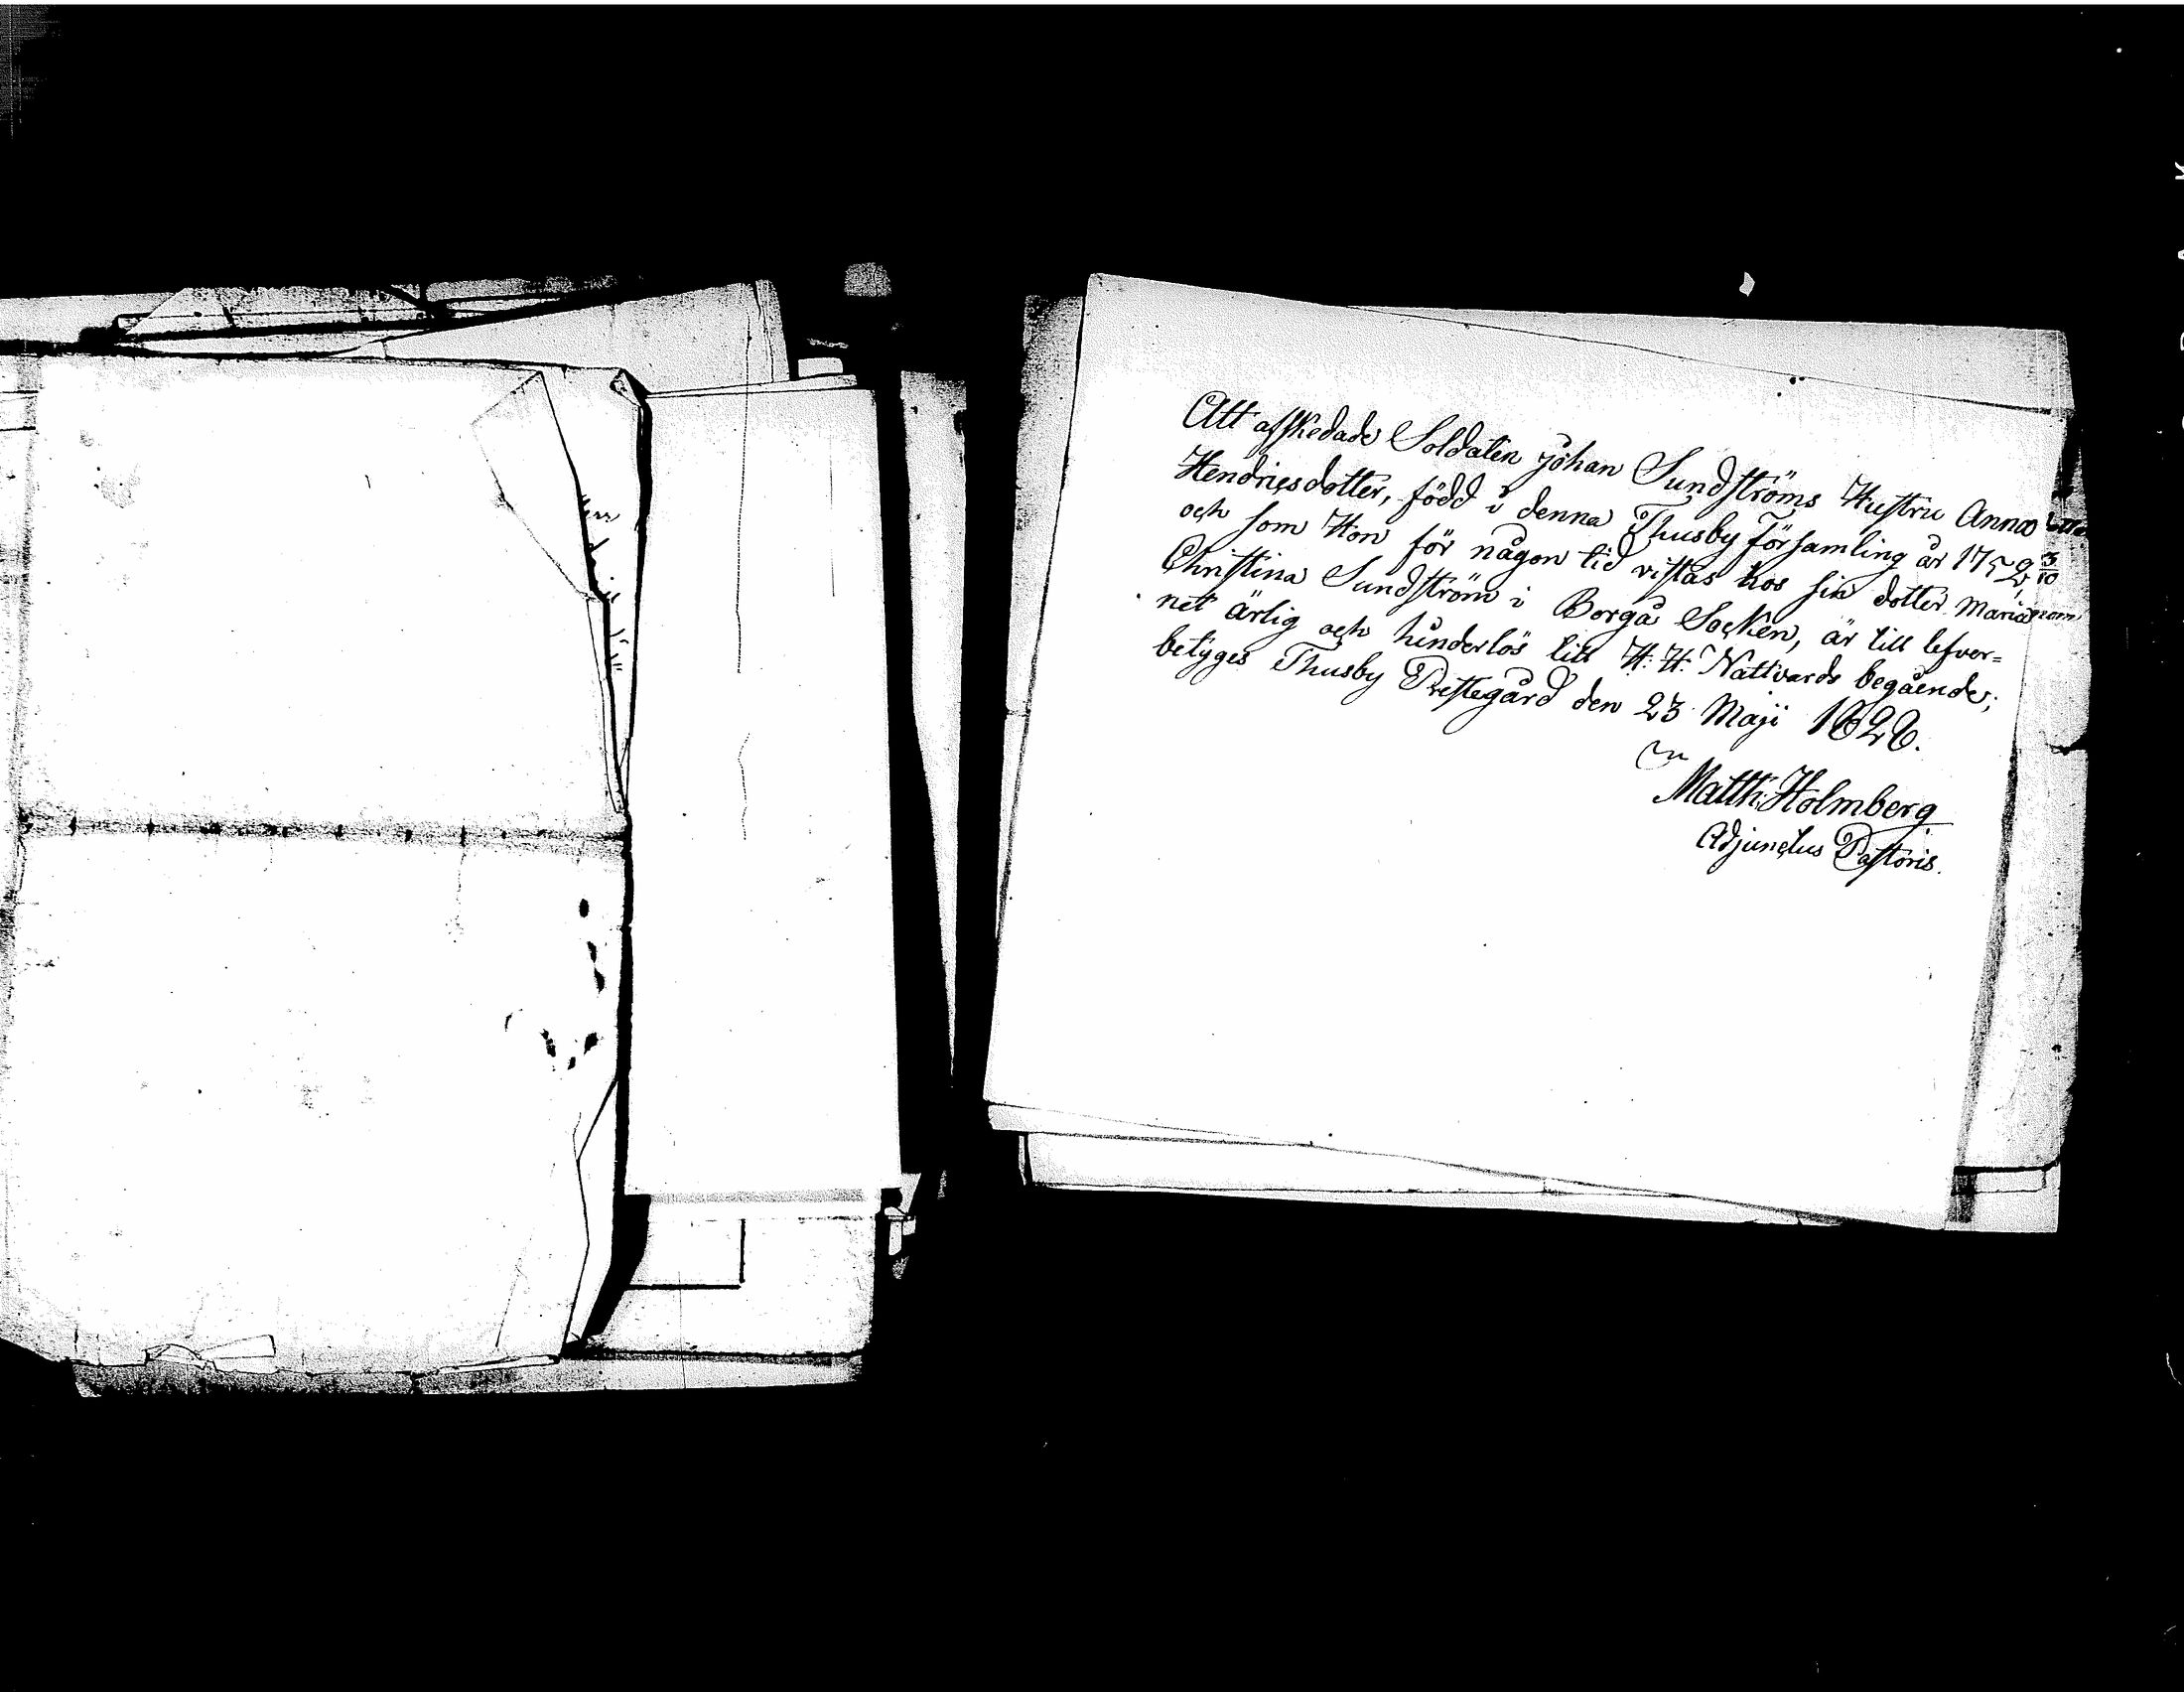 Att afskedade Soldaten Johan Sundströms Hustru Anna
Hendricsdotter, född i denna Thusby Församling år 1752 3/10
och som Hon för någon tid vistas hos sin dotter Maria
Christina Sundström i Borgå Socken, är till lefver=
net ärlig och hinderlös till H. H. Nattvards begående;
betyges Thusby Prestegård den 23 Maji 1828.
Matth: Holmberg
Adjunctus Pastoris.